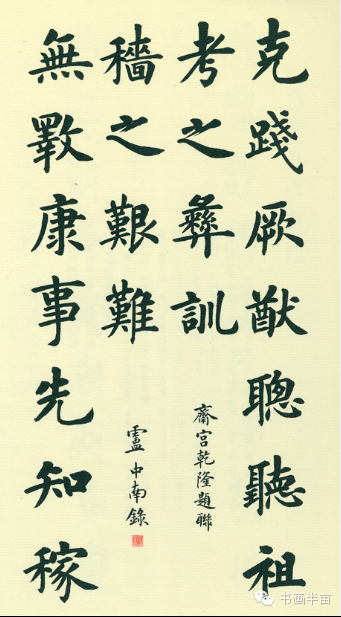 克踐厥猷聰聽祖
考之彝訓
齋宮乾隆題聯
無斁康事先知稼
穡之艱難
盧中南錄
书画半亩